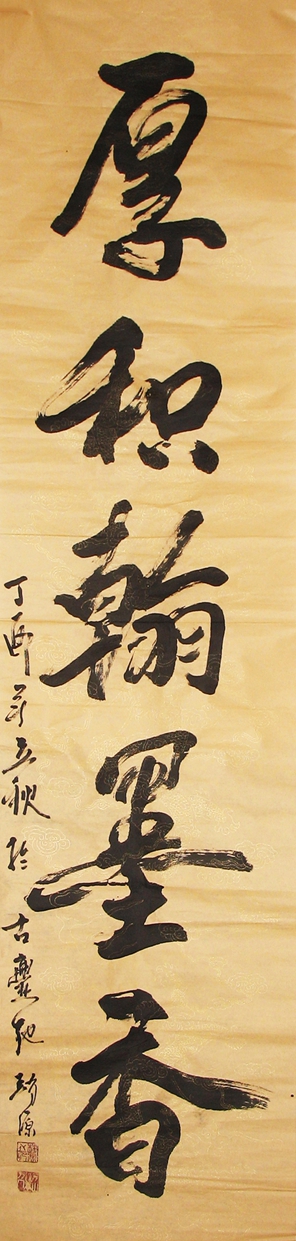 厚积翰墨香
丁酉年立秋於古